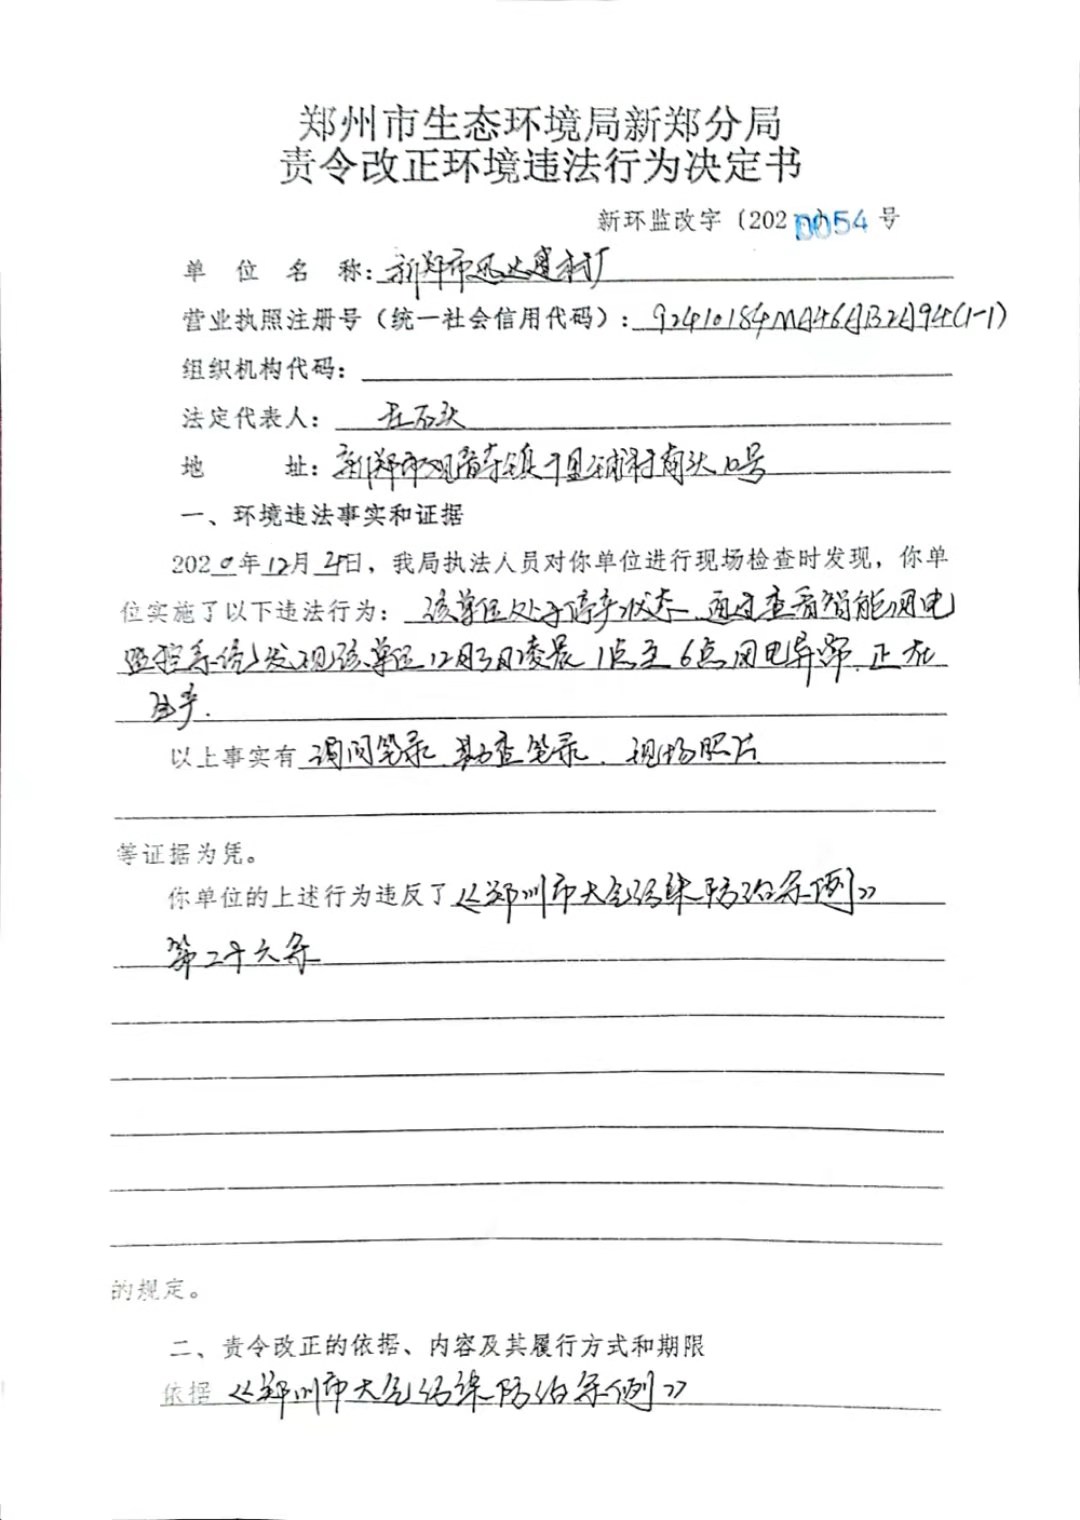 郑州市生态环境局新郑分局
责令改正环境违法行为决定书
新环监改字〔202 0054 号
单位名称：新郑市迅达建材厂
营业执照注册号（统一社会信用代码）：92410184MA46AB2A94(1-1)
组织机构代码：
法定代表人：石头
地 址：新郑市观音寺镇十里铺村南头 号
一、环境违法事实和证据
2020年12月4日，我局执法人员对你单位进行现场检查时发现，你单
位实施了以下违法行为：该单位处于停产状态，通过查看智能用电
监控系统，发现该单位12月3日凌晨1点至6点用电异常，正在
生产.
以上事实有 询问笔录、勘查笔录、现场照片
等证据为凭。
你单位的上述行为违反了《郑州市大气污染防治条例》
第二十六条
的规定。
二、责令改正的依据、内容及其履行方式和期限
依据《郑州市大气污染防治条例》